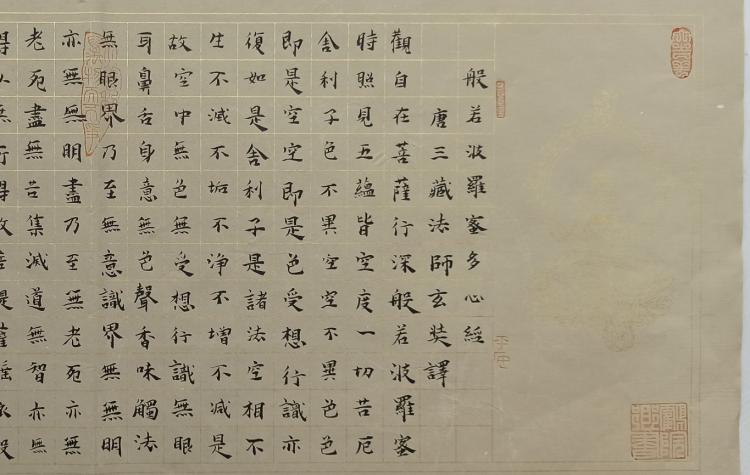 般若波羅蜜多心經
唐三藏法師玄奘譯
觀自在菩薩行深般若波羅蜜
時照見五蘊皆空度一切苦厄
舍利子色不異空空不異色色
即是空空即是色受想行識亦
復如是舍利子是諸法空相不
生不滅不垢不淨不增不減是
故空中無色無受想行識無眼
耳鼻舌身意無色聲香味觸法
無眼界乃至無意識界無無明
亦無無明盡乃至無老死亦無
老死盡無苦集滅道無智亦無
得以無所得故菩提薩埵依般
平安